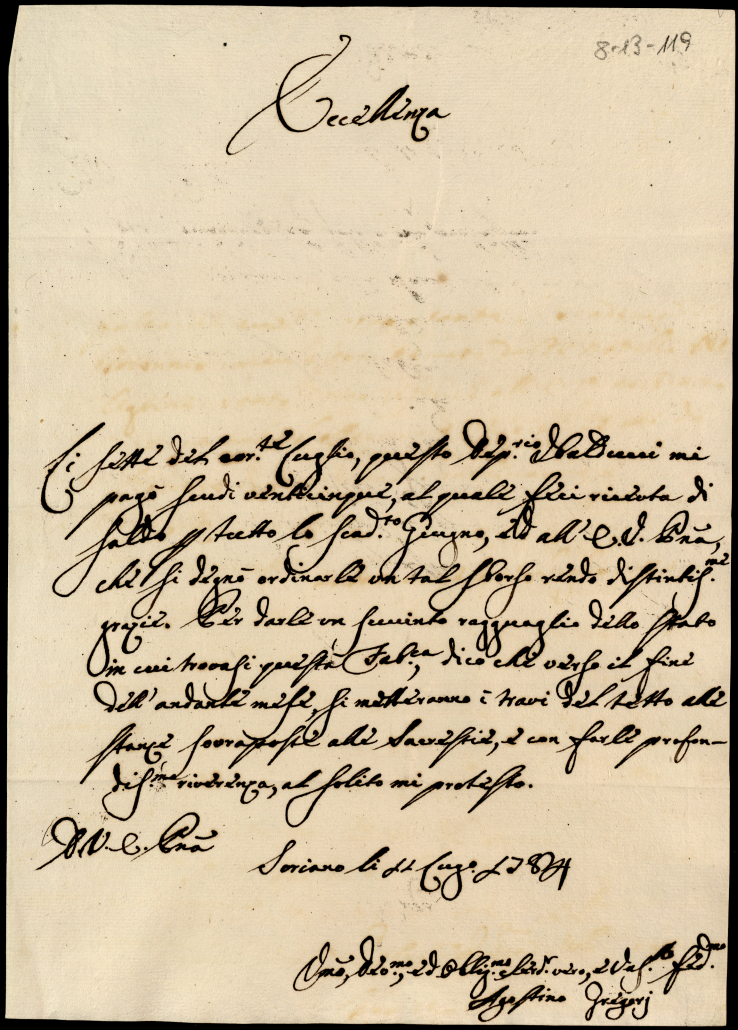 8-13-119
Eccellenza
Li sette del cor.te Luglio, questo Dep.rio Balducci mi
pagò scudi venticinque, al quale feci riceuta di
saldo p tutto lo scad.to Giugno, ed all' E. V. Pnã,
che si degnò ordinarle un tal sborso rendo distintis.me
grazie. Per darle un succinto ragguaglio dello stato
in cui trovasi questa Fab.ca, dico che verso il fine
dell' andante mese, si metteranno i travi del tetto alle
stanze sovraposte alle Sacrestie, e con farle profon-
dis.ma riverenza, al solito mi protesto.
D. V. E. Pnã
Soriano li 11 Lug.o 1784
Dmo, Devo.mo, ed Oblig.mo Serd.r vero, e Vas.lo fed.mo
Agostino Gregorj